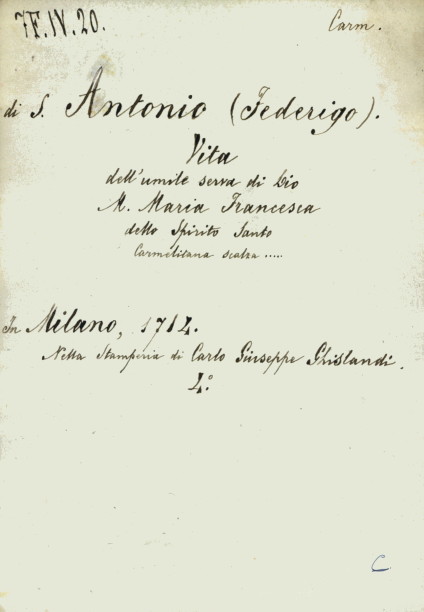 7F.IV.20.
Carm.
di S. Antonio (Federigo).
Vita
dell'umile serva di Dio
M. Maria Francesca
dello Spirito Santo
Carmelitana scalza .....
In Milano, 1714.
Nella Stamperia di Carlo Giuseppe Ghislandi.
4.°
C